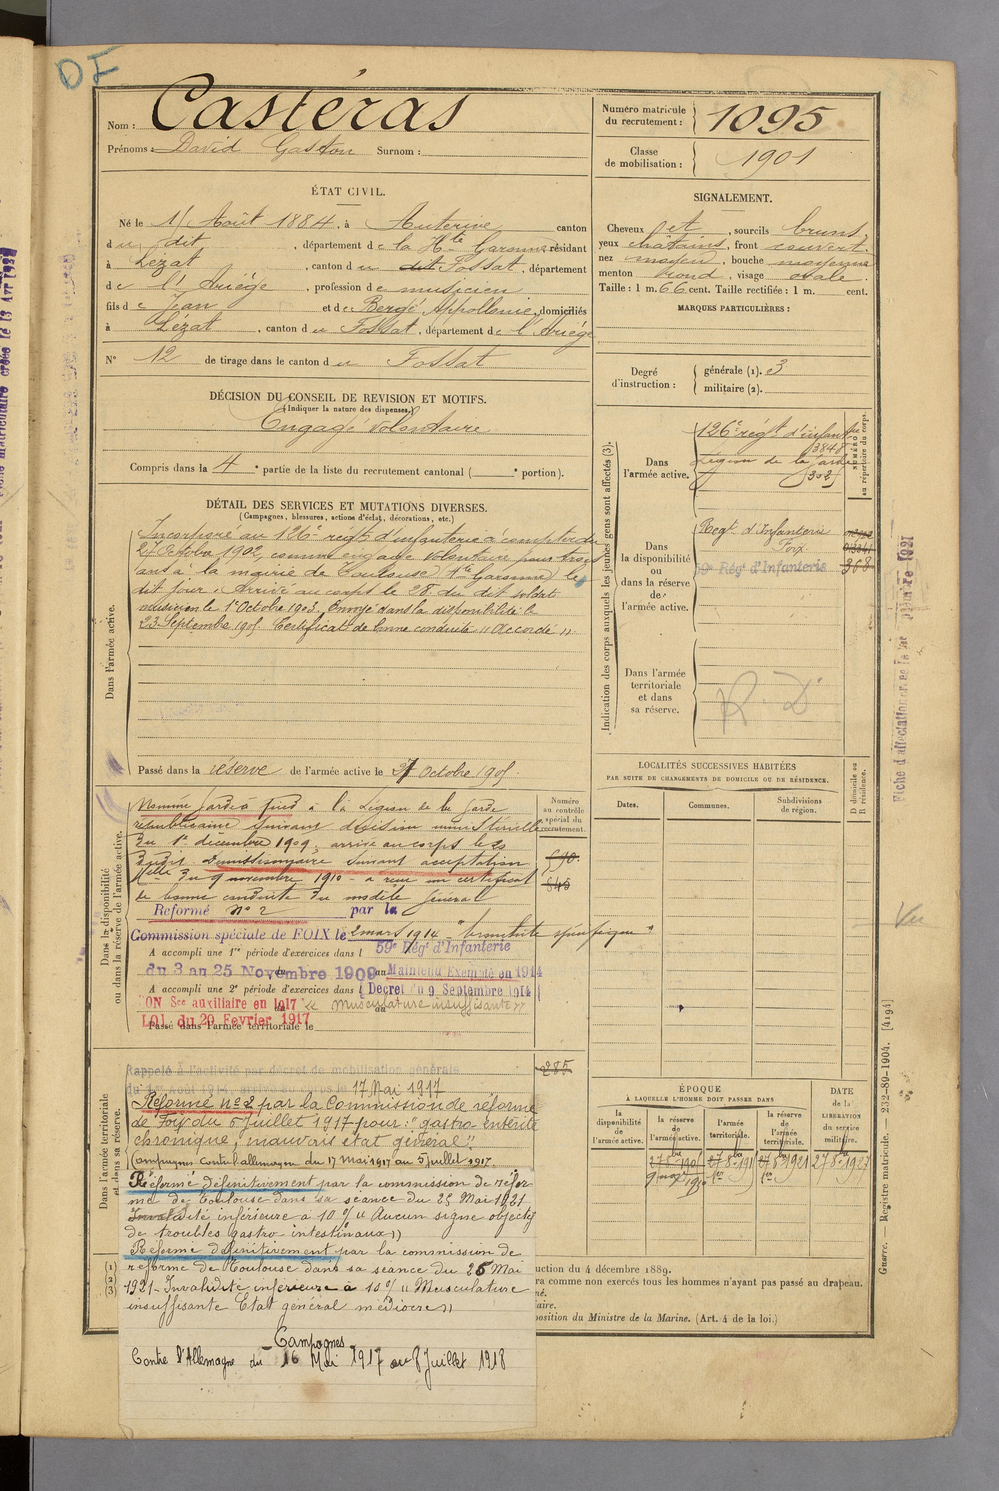 DF
Nom : Castéras
Prénoms : David Gaston Surnom :
Numéro matricule du recrutement : 1095
Classe de mobilisation : 1901
ÉTAT CIVIL.
Né le 1 Août 1884, à Auterive canton
du dit, département de la Hte Garonne, résidant
à Lézat, canton du dit Fossat, département
de l'Ariége, profession de musicien
fils de Jean et de Bergé Appollonie, domiciliés
à Lézat, canton du Fossat, département de l'Ariége
N° 12 de tirage dans le canton du Fossat
SIGNALEMENT.
Cheveux et, sourcils bruns
yeux châtains, front couvert
nez moyen, bouche moyenne
menton rond, visage ovale
Taille : 1 m. 66 cent. Taille rectifiée : 1 m. cent.
MARQUES PARTICULIÈRES :
Degré d'instruction : générale (1). 3
militaire (2).
DÉCISION DU CONSEIL DE REVISION ET MOTIFS.
(Indiquer la nature des dispenses.)
Engagé volontaire
Compris dans la 4e partie de la liste du recrutement cantonal ( e portion).
DÉTAIL DES SERVICES ET MUTATIONS DIVERSES.
(Campagnes, blessures, actions d'éclat, décorations, etc.)
Dans l'armée active.
Incorporé au 126e régt d'infanterie à compter du
27 Octobre 1902, comme engagé volontaire pour trois
ans à la mairie de Toulouse (Hte Garonne) le
dit jour. Arrivé au corps le 28 du dit soldat
musicien le 1er Octobre 1903. Envoyé dans la disponibilité le
23 Septembre 1905. Certificat de bonne conduite "Accordé".
Passé dans la réserve de l'armée active le 27 Octobre 1905.
Indication des corps auxquels les jeunes gens sont affectés (3).
NUMÉRO au répertoire du corps.
Dans l'armée active.
126e régt d'infanterie
3848
Légion de la Garde
302
Dans la disponibilité ou dans la réserve de l'armée active.
Regt d'Infanterie
Foix
59e Régt d'Infanterie 308
Dans l'armée territoriale et dans sa réserve.
R.D
Dans la disponibilité ou dans la réserve de l'armée active.
Numéro au contrôle spécial du recrutement.
Nommé garde à pied à la Légion de la Garde
républicaine suivant décision ministérielle
du 1er décembre 1909, arrivé au corps le 20
dudit. Démissionnaire suivant acceptation
Melle du 9 novembre 1910 - a reçu un certificat
de bonne conduite du modèle général
590
845
Reformé n° 2 par la
Commission spéciale de FOIX le 2 mars 1914 "bronchite
A accompli une 1re période d'exercices dans l 59e Régt d'Infanterie
du 3 au 25 Novembre 1909 au Maintenu Exempté en 1914
A accompli une 2e période d'exercices dans l (Décret du 9 Septembre 1914)
ON Sce auxiliaire en 1917 "musculature insuffisante"
LOI du 20 Fevrier 1917
Passé dans l'armée territoriale le
LOCALITÉS SUCCESSIVES HABITÉES
PAR SUITE DE CHANGEMENTS DE DOMICILE OU DE RÉSIDENCE.
Dates. Communes. Subdivisions de région. D domicile ou R résidence.
Dans l'armée territoriale et dans sa réserve.
Rappelé à l'activité par décret de mobilisation générale
du 1er Août 1914, arrivé au corps le 17 Mai 1917
285
Réformé n° 2 par la Commission de réforme
de Foix du 5 Juillet 1917 pour : "gastro-entérite
chronique, mauvais état général"
Campagnes contre l'allemagne du 17 mai 1917 au 5 juillet 1917
Réformé définitivement par la commission de réfor
me de Toulouse dans sa séance du 25 Mai 1921
Invalidité inférieure à 10 % "Aucun signe objectif
de troubles gastro intestinaux"
Réformé définitivement par la commission de
réforme de Toulouse dans sa séance du 25 Mai
1921 - Invalidité inférieure à 10 % "Musculature
insuffisante Etat général médiocre"
Campagnes
Contre l'Allemagne du 16 Mai 1917 au 8 Juillet 1918
ÉPOQUE
À LAQUELLE L'HOMME DOIT PASSER DANS
la disponibilité de l'armée active. la réserve de l'armée active. l'armée territoriale. la réserve de l'armée territoriale.
DATE de la LIBÉRATION du service militaire.
27 8bre 1905 27 8bre 191 27 8bre 1921 27 8bre 1927
(1)
(2)
(3)
uction du 4 décembre 1889.
ra comme non exercés tous les hommes n'ayant pas passé au drapeau.
né.
laire.
position du Ministre de la Marine. (Art. 4 de la loi.)
Guerre. — Registre matricule. — 232-89-1904. [4194]
Vu